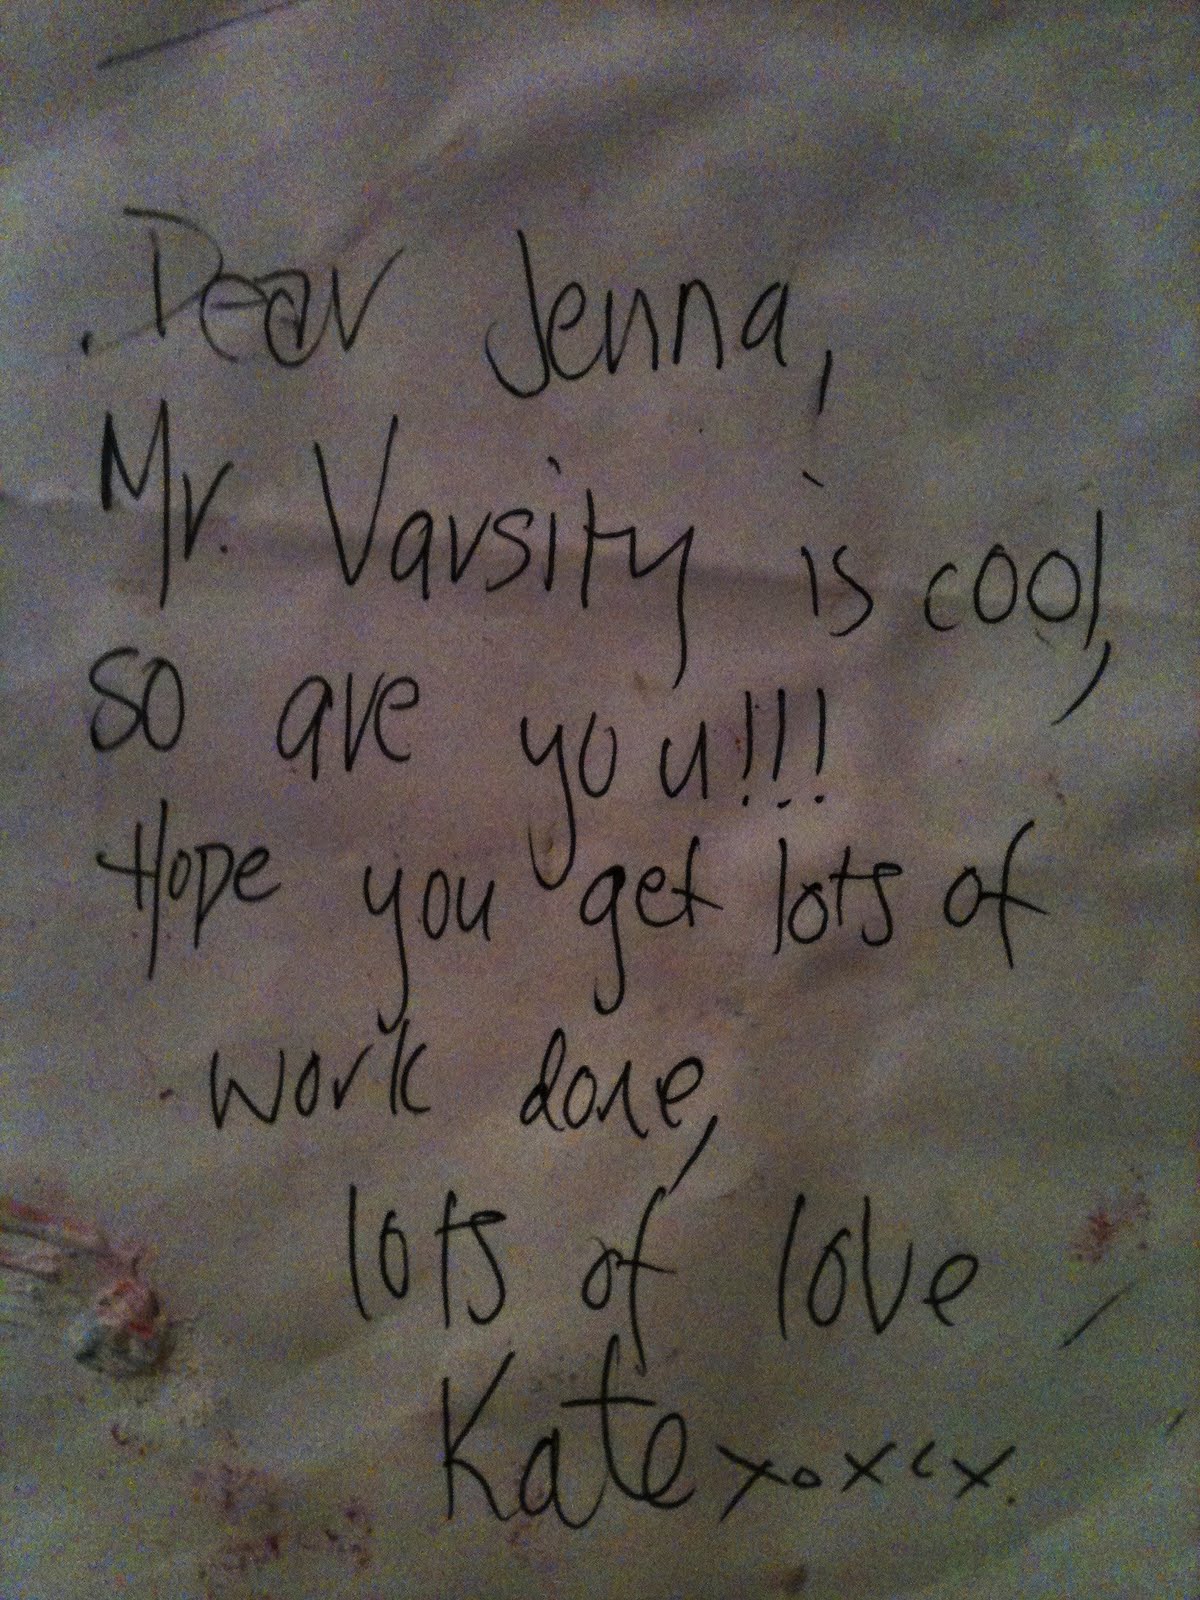 Dear Jenna,
Mr. Varsity is cool,
so are you!!!
Hope you get lots of
work done,
lots of love
Kate xoxox